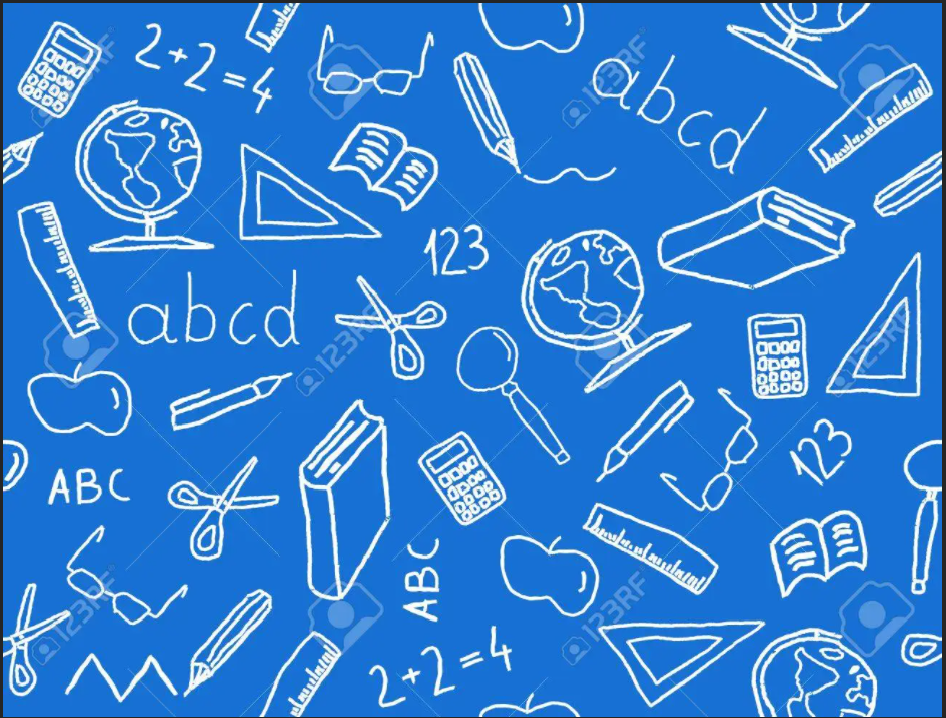 2+2=4
abcd
123
abcd
123
ABC
ABC
2+2=4
123RF
123RF
123RF
123RF
123RF
123RF
123RF